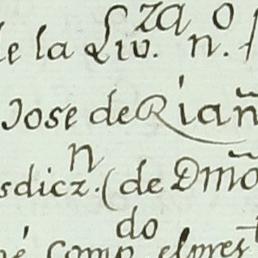 de la Liv.za n.o
Jose de Riañ
sdicz.n (de Dmõ
né comp.do el pres.t